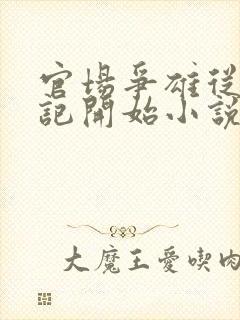 官場爭雄從
記開始小說
大魔王愛喫肉